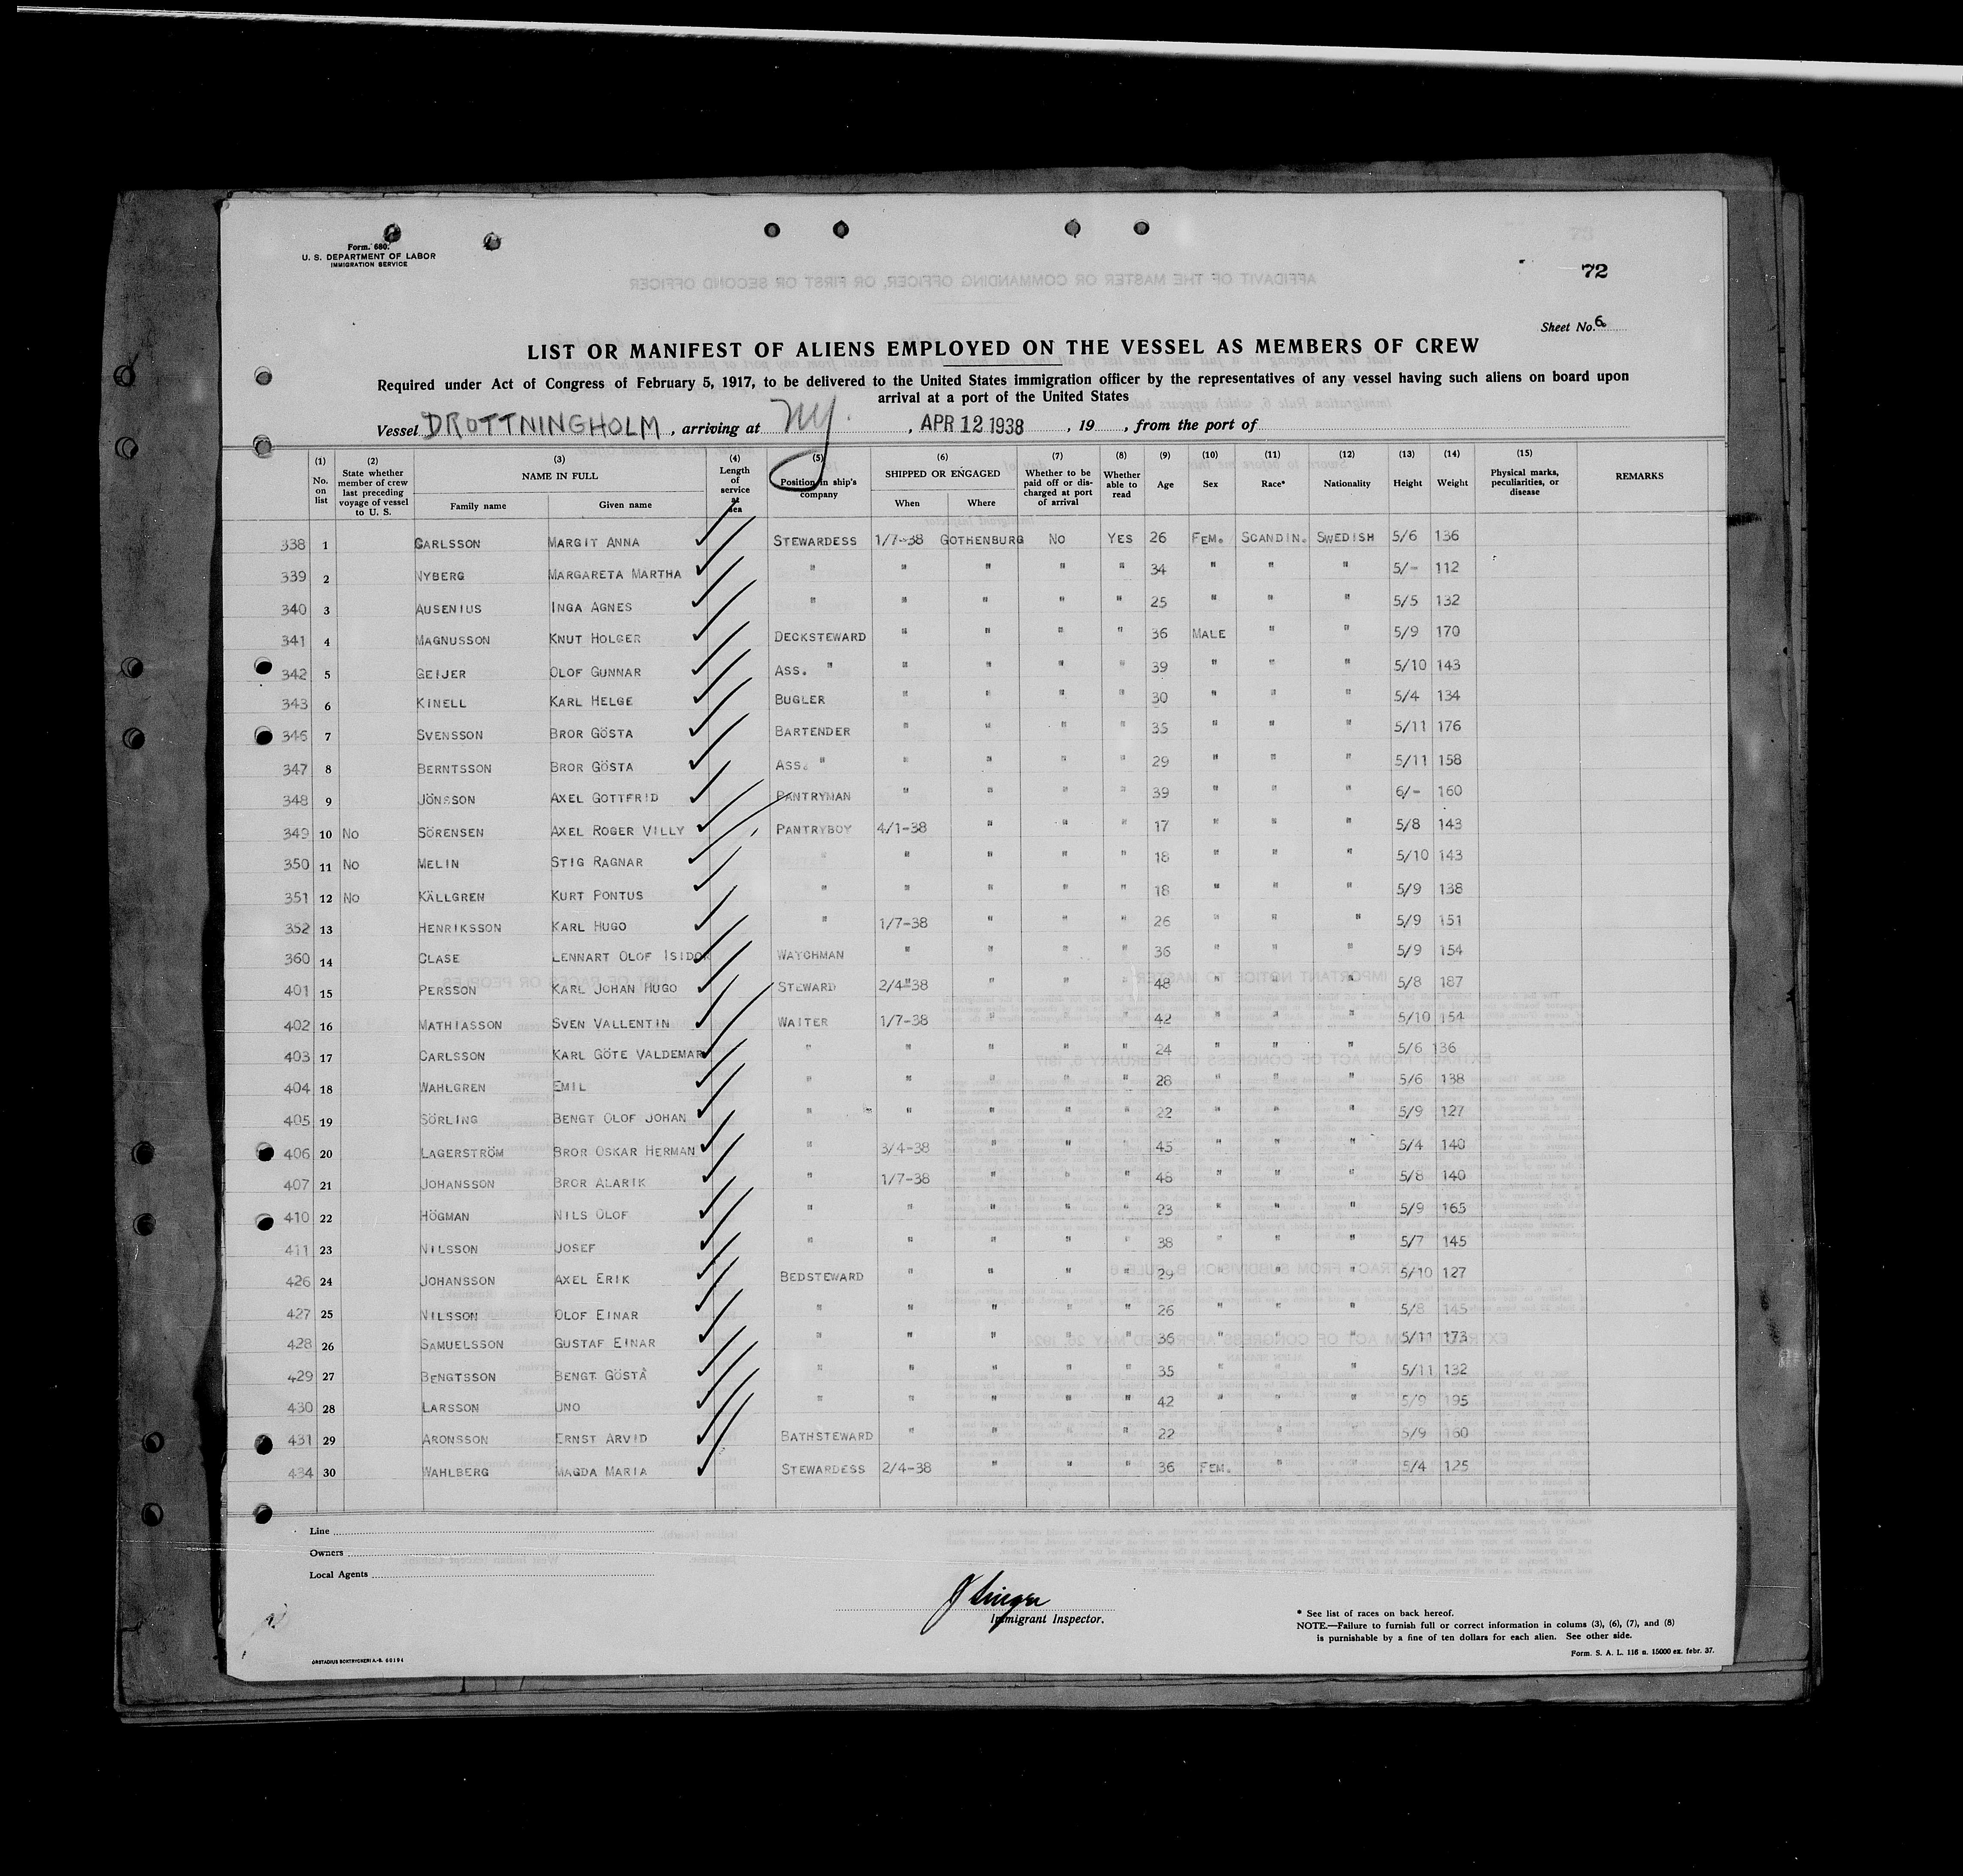 Form. 680.
U. S. DEPARTMENT OF LABOR
IMMIGRATION SERVICE
72
Sheet No. 6
LIST OR MANIFEST OF ALIENS EMPLOYED ON THE VESSEL AS MEMBERS OF CREW
Required under Act of Congress of February 5, 1917, to be delivered to the United States immigration officer by the representatives of any vessel having such aliens on board upon
arrival at a port of the United States
Vessel DROTTNINGHOLM, arriving at NY., APR 12 1938, 19, from the port of
(1) No. on list (2) State whether member of crew last preceding voyage of vessel to U. S. (3) NAME IN FULL Family name Given name (4) Length of service at sea (5) Position in ship's company (6) SHIPPED OR ENGAGED When Where (7) Whether to be paid off or discharged at port of arrival (8) Whether able to read (9) Age (10) Sex (11) Race* (12) Nationality (13) Height (14) Weight (15) Physical marks, peculiarities, or disease REMARKS
338 1 CARLSSON MARGIT ANNA STEWARDESS 1/7-38 GOTHENBURG NO YES 26 FEM. SCANDIN. SWEDISH 5/6 136
339 2 NYBERG MARGARETA MARTHA " " " " " 34 " " " 5/- 112
340 3 AUSENIUS INGA AGNES " " " " " 25 " " " 5/5 132
341 4 MAGNUSSON KNUT HOLGER DECKSTEWARD " " " " 36 MALE " " 5/9 170
342 5 GEIJER OLOF GUNNAR ASS. " " " " " 39 " " " 5/10 143
343 6 KINELL KARL HELGE BUGLER " " " " 30 " " " 5/4 134
346 7 SVENSSON BROR GÖSTA BARTENDER " " " " 35 " " " 5/11 176
347 8 BERNTSSON BROR GÖSTA ASS. " " " " " 29 " " " 5/11 158
348 9 JÖNSSON AXEL GOTTFRID PANTRYMAN " " " " 39 " " " 6/- 160
349 10 NO SÖRENSEN AXEL ROGER VILLY PANTRYBOY 4/1-38 " " " 17 " " " 5/8 143
350 11 NO MELIN STIG RAGNAR " " " " " 18 " " " 5/10 143
351 12 NO KÄLLGREN KURT PONTUS " " " " " 18 " " " 5/9 138
352 13 HENRIKSSON KARL HUGO " 1/7-38 " " " 26 " " " 5/9 151
360 14 CLASE LENNART OLOF ISIDOR WATCHMAN " " " " 36 " " " 5/9 154
401 15 PERSSON KARL JOHAN HUGO STEWARD 2/4"38 " " " 48 " " " 5/8 187
402 16 MATHIASSON SVEN VALLENTIN WAITER 1/7-38 " " " 42 " " " 5/10 154
403 17 CARLSSON KARL GÖTE VALDEMAR " " " " " 24 " " " 5/6 136
404 18 WAHLGREN EMIL " " " " " 28 " " " 5/6 138
405 19 SÖRLING BENGT OLOF JOHAN " " " " " 22 " " " 5/9 127
406 20 LAGERSTRÖM BROR OSKAR HERMAN " 3/4-38 " " " 45 " " " 5/4 140
407 21 JOHANSSON BROR ALARIK " 1/7-38 " " " 48 " " " 5/8 140
410 22 HÖGMAN NILS OLOF " " " " " 23 " " " 5/9 165
411 23 NILSSON JOSEF " " " " " 38 " " " 5/7 145
426 24 JOHANSSON AXEL ERIK BEDSTEWARD " " " " 29 " " " 5/10 127
427 25 NILSSON OLOF EINAR " " " " " 26 " " " 5/8 145
428 26 SAMUELSSON GUSTAF EINAR " " " " " 36 " " " 5/11 173
429 27 BENGTSSON BENGT GÖSTA " " " " " 35 " " " 5/11 132
430 28 LARSSON UNO " " " " " 42 " " " 5/9 195
431 29 ARONSSON ERNST ARVID BATHSTEWARD " " " " 22 " " " 5/9 160
434 30 WAHLBERG MAGDA MARIA STEWARDESS 2/4-38 " " " 36 FEM. " " 5/4 125
Line
Owners
Local Agents
Immigrant Inspector.
* See list of races on back hereof.
NOTE.—Failure to furnish full or correct information in colums (3), (6), (7), and (8)
is purnishable by a fine of ten dollars for each alien. See other side.
Form. S. A. L. 116 n. 15000 ex. febr. 37.